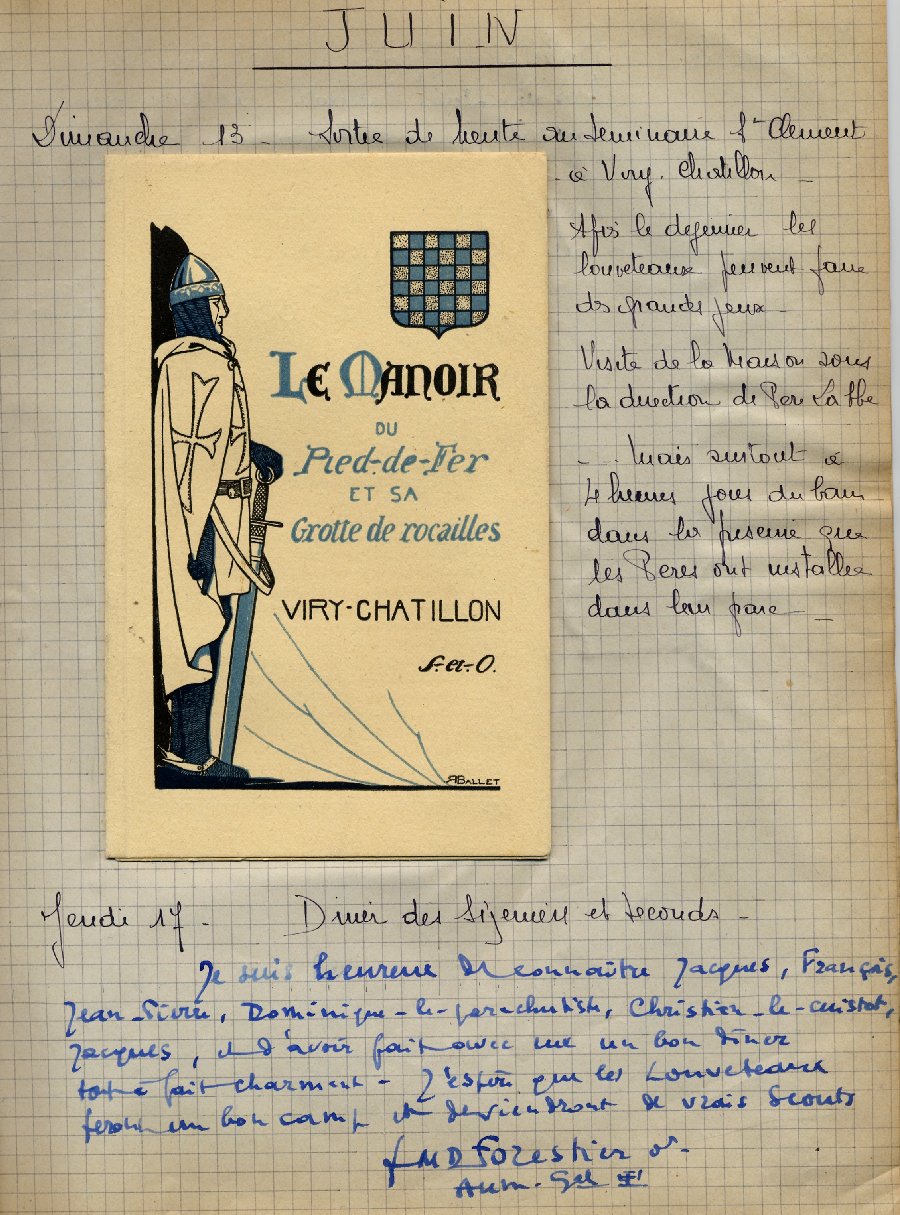 JUIN
Dimanche 13 - Sortie de hente au Seminaire St Clement
à Viry. Chatillon -
Après le dejeuner les
louveteaux peuvent faire
des grands jeux -
Visite de la Maison sous
la direction de Père Labbe
- .. Mais surtout à
4 heures joies du bain
dans la piscine que
les Pères ont installée
dans leur parc -
LE MANOIR
DU
Pied-de-Fer
ET SA
Grotte de rocailles
VIRY-CHATILLON
S.-et-O.
RBALLET
Jeudi 17 - Diner des Sizeniers et Seconds -
Je suis heureux de connaître Jacques, François,
Jean-Pierre, Dominique-le-parachutiste, Christian-le-cuistot,
Jacques, et d'avoir fait avec eux un bon dîner
tout à fait charmant - J'espère que les Louveteaux
feront un bon camp et deviendront de vrais Scouts
fMD Forestier o.p.
Aum. Gal